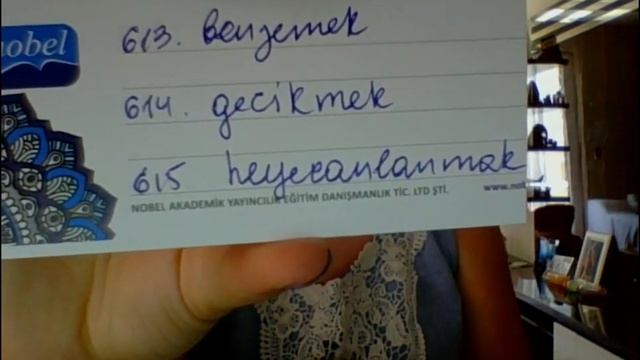 nobel
613. benzemek
614. gecikmek
615 heyecanlanmak
NOBEL AKADEMİK YAYINCILIK EĞİTİM DANIŞMANLIK TİC. LTD ŞTİ.